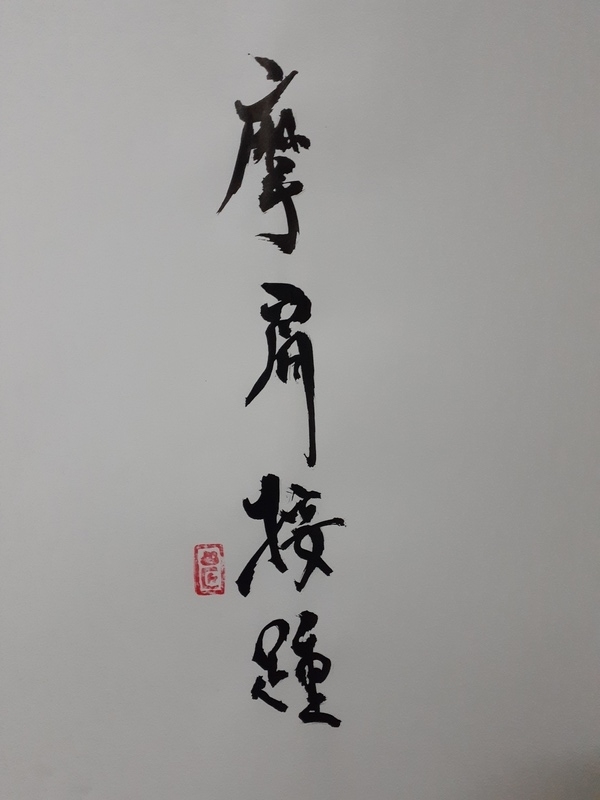 摩肩接踵